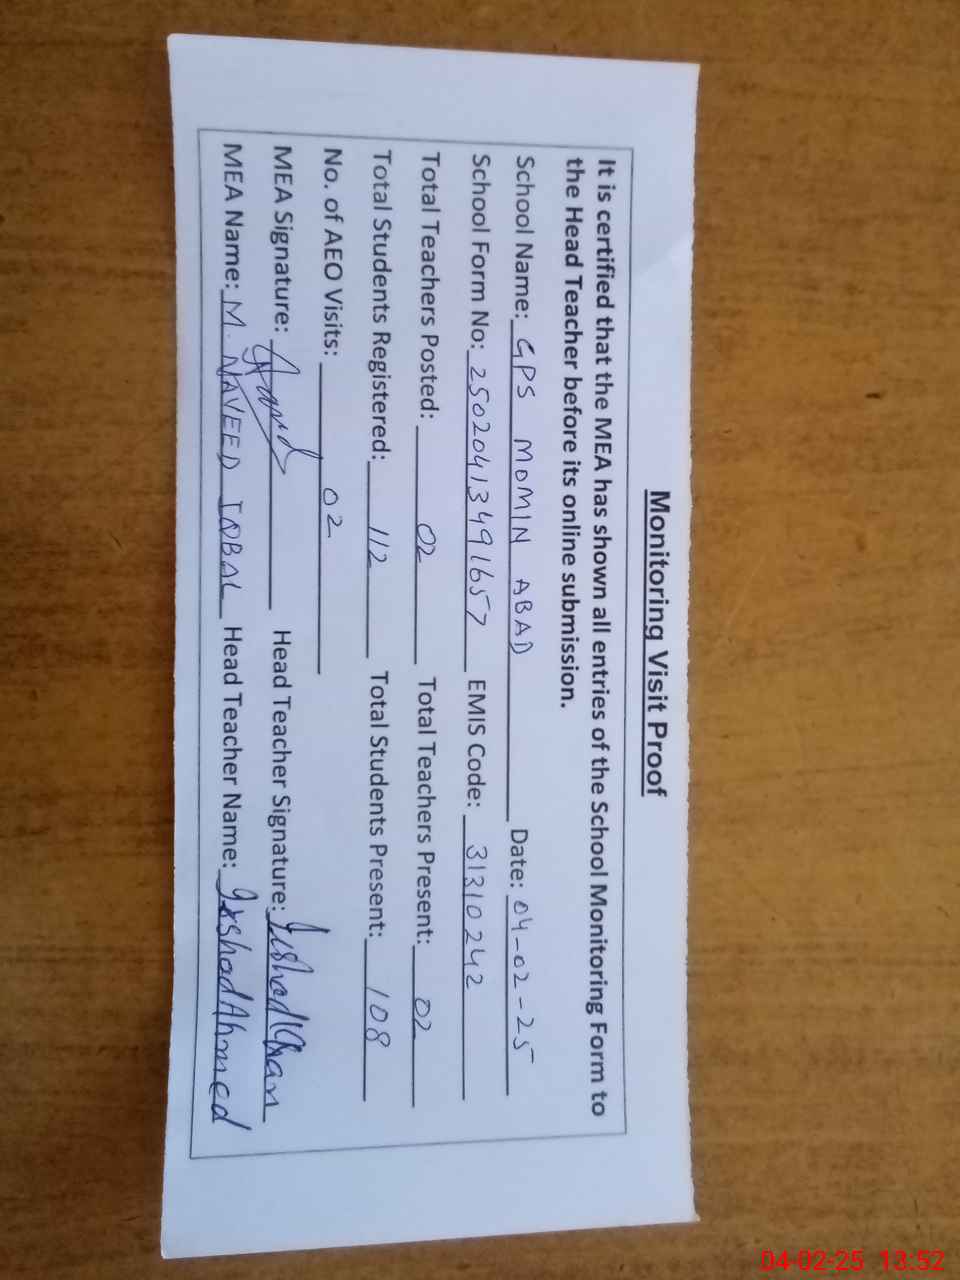 Monitoring Visit Proof
It is certified that the MEA has shown all entries of the School Monitoring Form to
the Head Teacher before its online submission.
School Name: GPS MOMIN ABAD Date: 04-02-25
School Form No: 2502041349 1657 EMIS Code: 31310242
Total Teachers Posted: 02 Total Teachers Present: 02
Total Students Registered: 112 Total Students Present: 108
No. of AEO Visits: 02
MEA Signature: Head Teacher Signature: Irshad Khan
MEA Name: M. NAVEED IQBAL Head Teacher Name: Irshad Ahmed
04-02-25 13:52